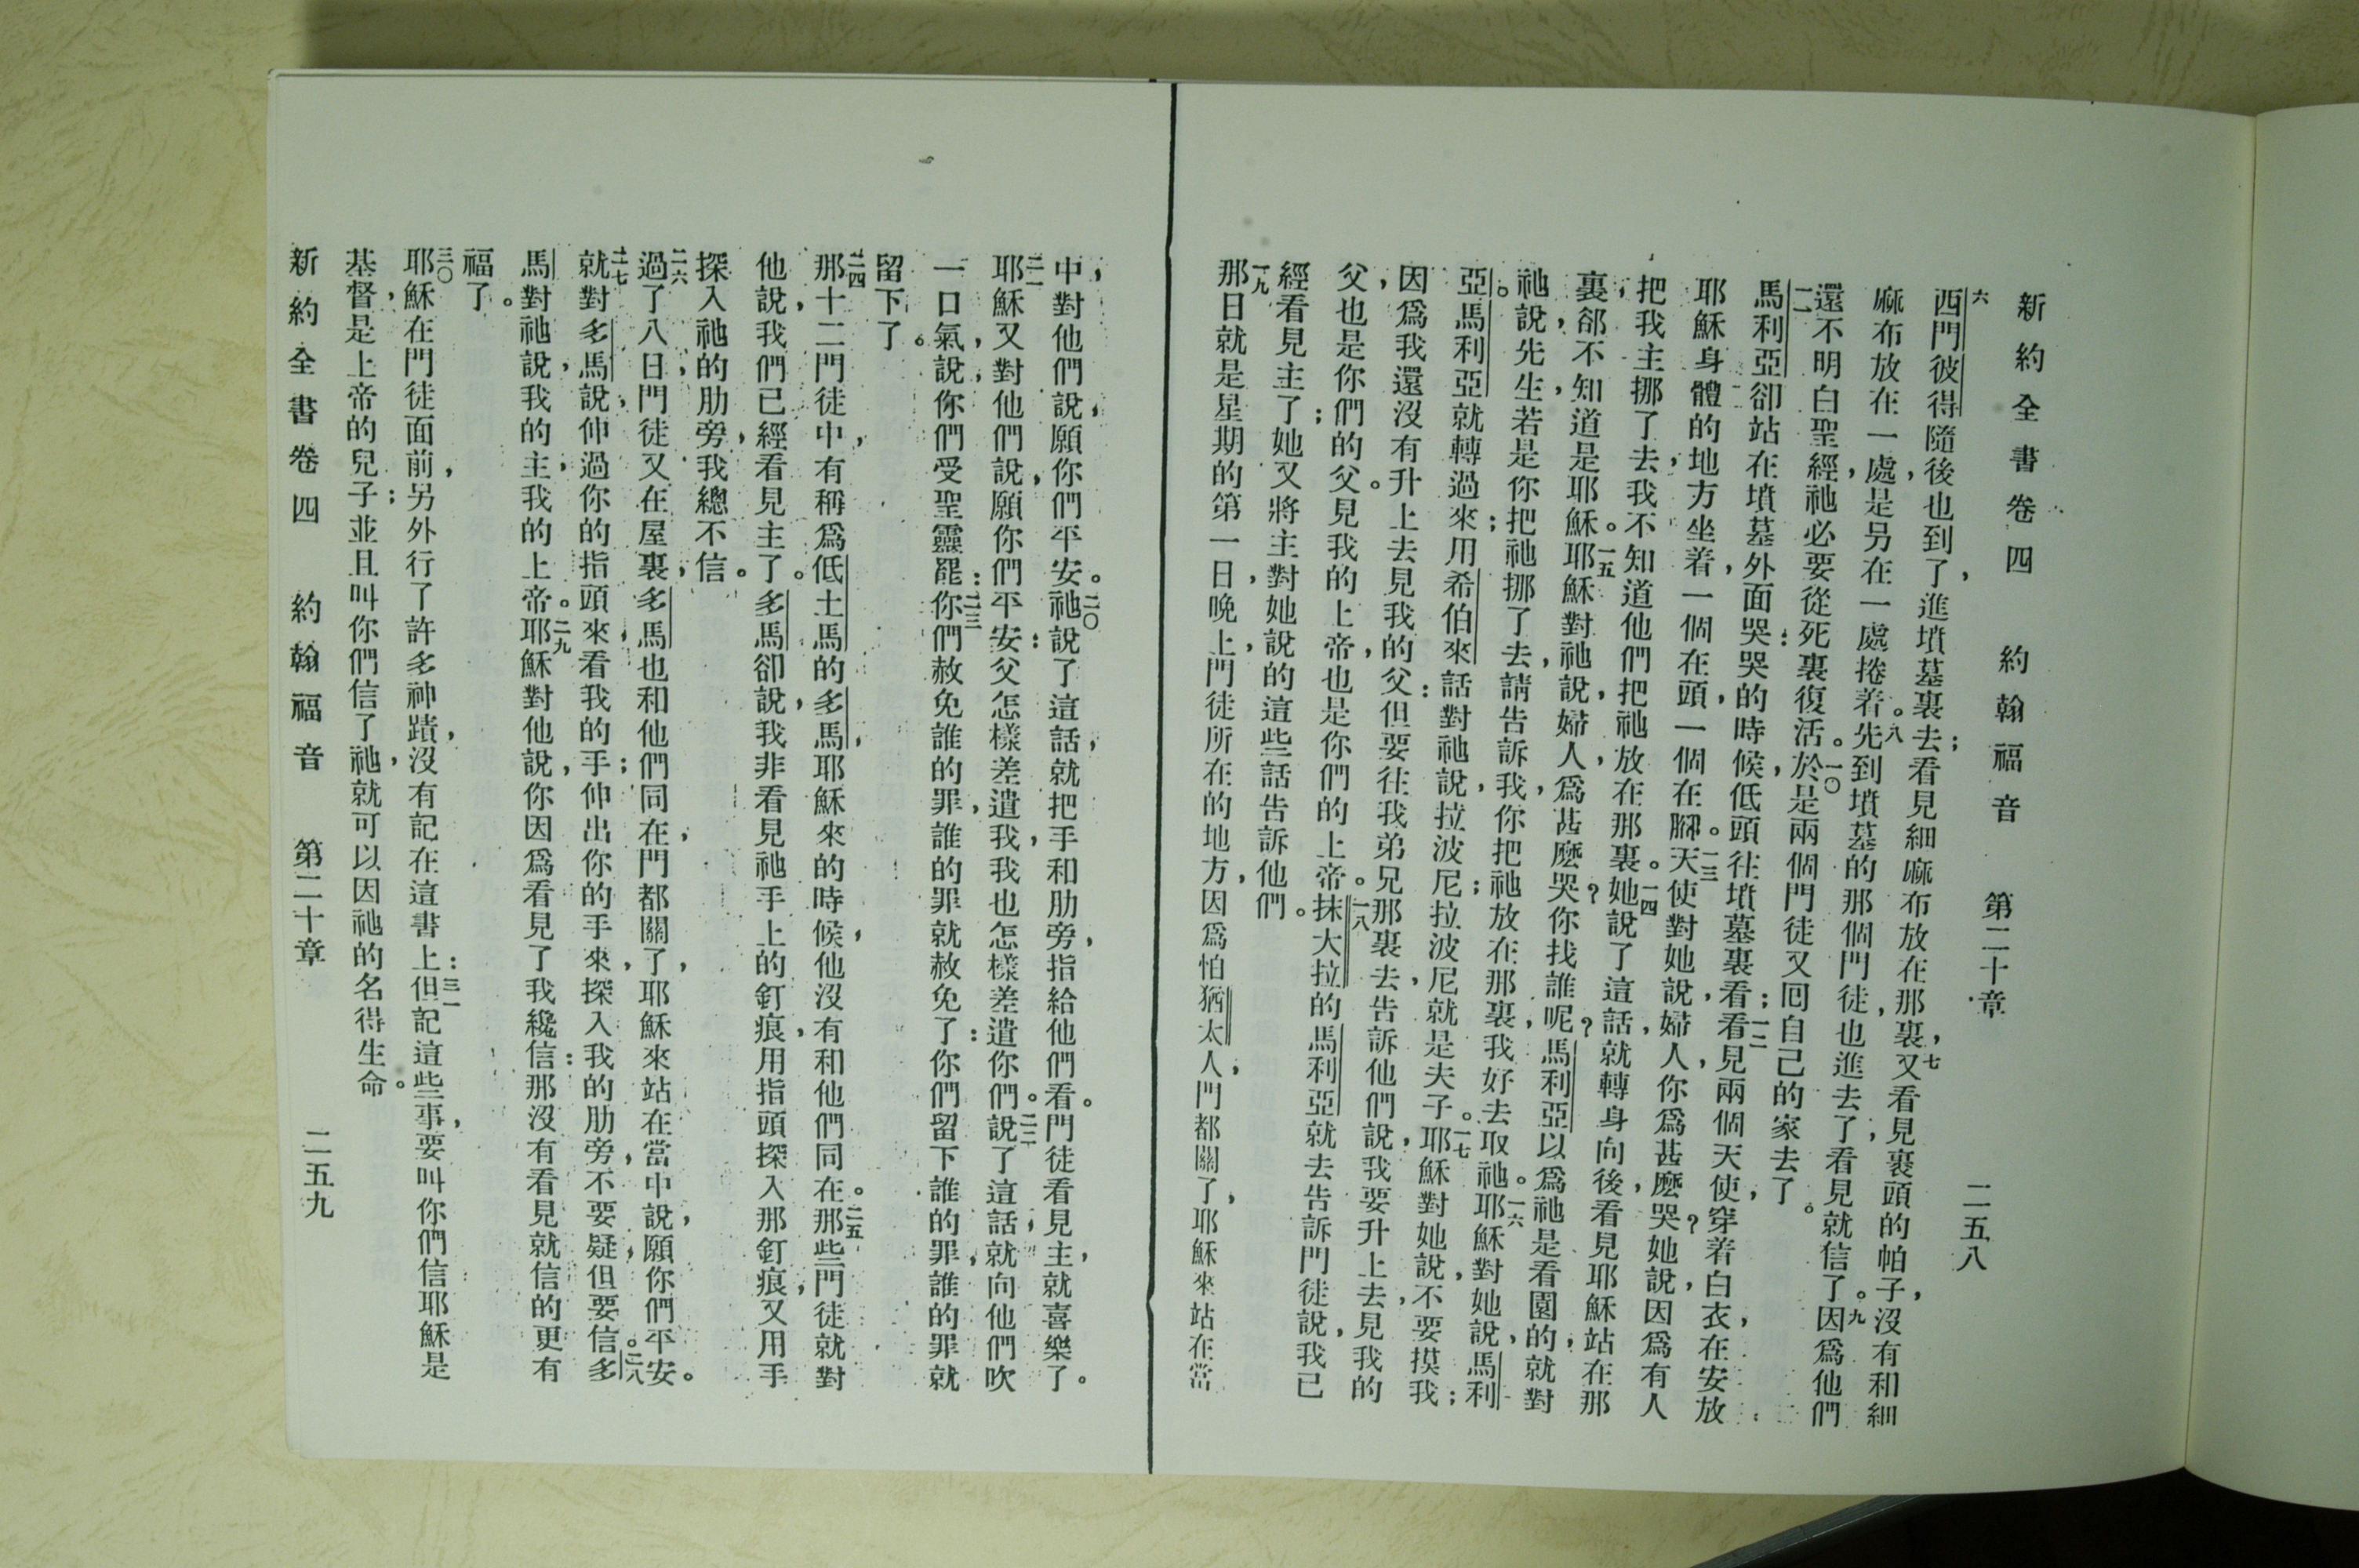 新約全書卷四 約翰福音 第二十章 二五八
六西門彼得隨後也到了，進墳墓裏去；看見細麻布放在那裏，七又看見裹頭的帕子，沒有和細
麻布放在一處，是另在一處捲着。八先到墳墓的那個門徒，也進去了，看見就信了。九因爲他們
還不明白聖經，祂必要從死裏復活。一〇於是兩個門徒又囘自己的家去了。
一一馬利亞卻站在墳墓外面哭：哭的時候，低頭往墳墓裏看；一二看見兩個天使，穿着白衣，在安放
耶穌身體的地方坐着，一個在頭，一個在腳。一三天使對她說，婦人，你爲甚麼哭？她說，因爲有人
把我主挪了去，我不知道他們把祂放在那裏。一四她說了這話，就轉身向後，看見耶穌站在那
裏，卻不知道是耶穌。一五耶穌對祂說，婦人，爲甚麼哭？你找誰呢？馬利亞以爲祂是看園的，就對
祂說，先生，若是你把祂挪了去，請告訴我，你把祂放在那裏，我好去取祂。一六耶穌對她說，馬利
亞。馬利亞就轉過來，用希伯來話對祂說，拉波尼；拉波尼就是夫子。一七耶穌對她說，不要摸我；
因爲我還沒有升上去見我的父：但要往我弟兄那裏去，告訴他們說，我要升上去，見我的
父，也是你們的父；見我的上帝，也是你們的上帝。一八抹大拉的馬利亞就去告訴門徒說，我已
經看見主了；她又將主對她說的這些話告訴他們。
一九那日就是星期的第一日，晚上，門徒所在的地方，因爲怕猶太人，門都關了，耶穌來站在當
中，對他們說，願你們平安。二〇祂說了這話，就把手和肋旁，指給他們看。門徒看見主，就喜樂了。
二一耶穌又對他們說，願你們平安：父怎樣差遣我，我也怎樣差遣你們。二二說了這話，就向他們吹
一口氣，說，你們受聖靈罷：二三你們赦免誰的罪，誰的罪就赦免了：你們留下誰的罪，誰的罪就
留下了。
二四那十二門徒中，有稱爲低土馬的多馬，耶穌來的時候，他沒有和他們同在。二五那些門徒就對
他說，我們已經看見主了。多馬卻說，我非看見祂手上的釘痕，用指頭探入那釘痕，又用手
探入祂的肋旁，我總不信。
二六過了八日，門徒又在屋裏，多馬也和他們同在，門都關了，耶穌來站在當中說，願你們平安。
二七就對多馬說，伸過你的指頭來，看我的手；伸出你的手來，探入我的肋旁，不要疑，但要信。二八多
馬對祂說，我的主，我的上帝。二九耶穌對他說，你因爲看見了我纔信：那沒有看見就信的更有
福了。
三〇耶穌在門徒面前，另外行了許多神蹟，沒有記在這書上：三一但記這些事，要叫你們信耶穌是
基督，是上帝的兒子；並且叫你們信了祂，就可以因祂的名得生命。
新約全書卷四 約翰福音 第二十章 二五九